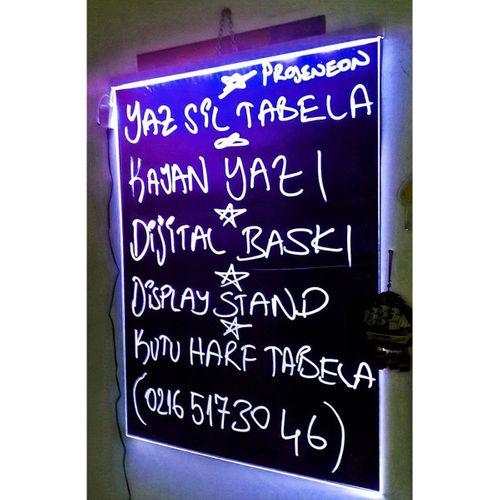 PROJENEON
YAZ SİL TABELA
KAYAN YAZI
DİJİTAL BASKI
DISPLAY STAND
KUTU HARF TABELA
(0216 5173046)